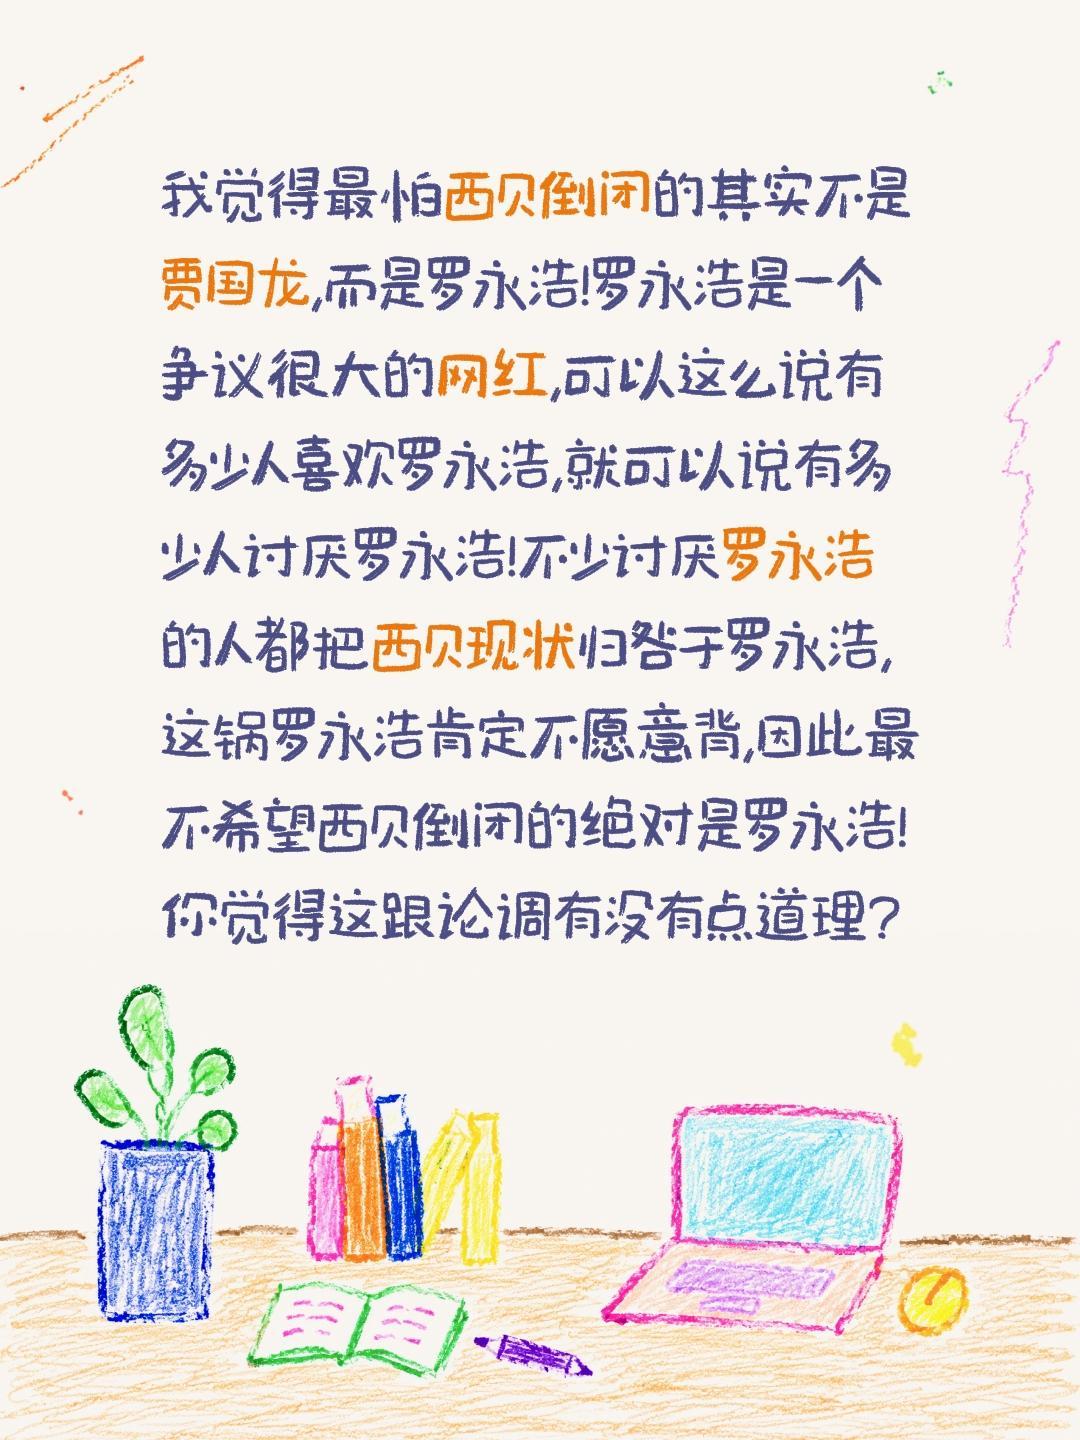 我觉得最怕西贝倒闭的其实不是
贾国龙,而是罗永浩!罗永浩是一个
争议很大的网红,可以这么说有
多少人喜欢罗永浩,就可以说有多
少人讨厌罗永浩!不少讨厌罗永浩
的人都把西贝现状归咎于罗永浩,
这锅罗永浩肯定不愿意背,因此最
不希望西贝倒闭的绝对是罗永浩!
你觉得这跟论调有没有点道理?